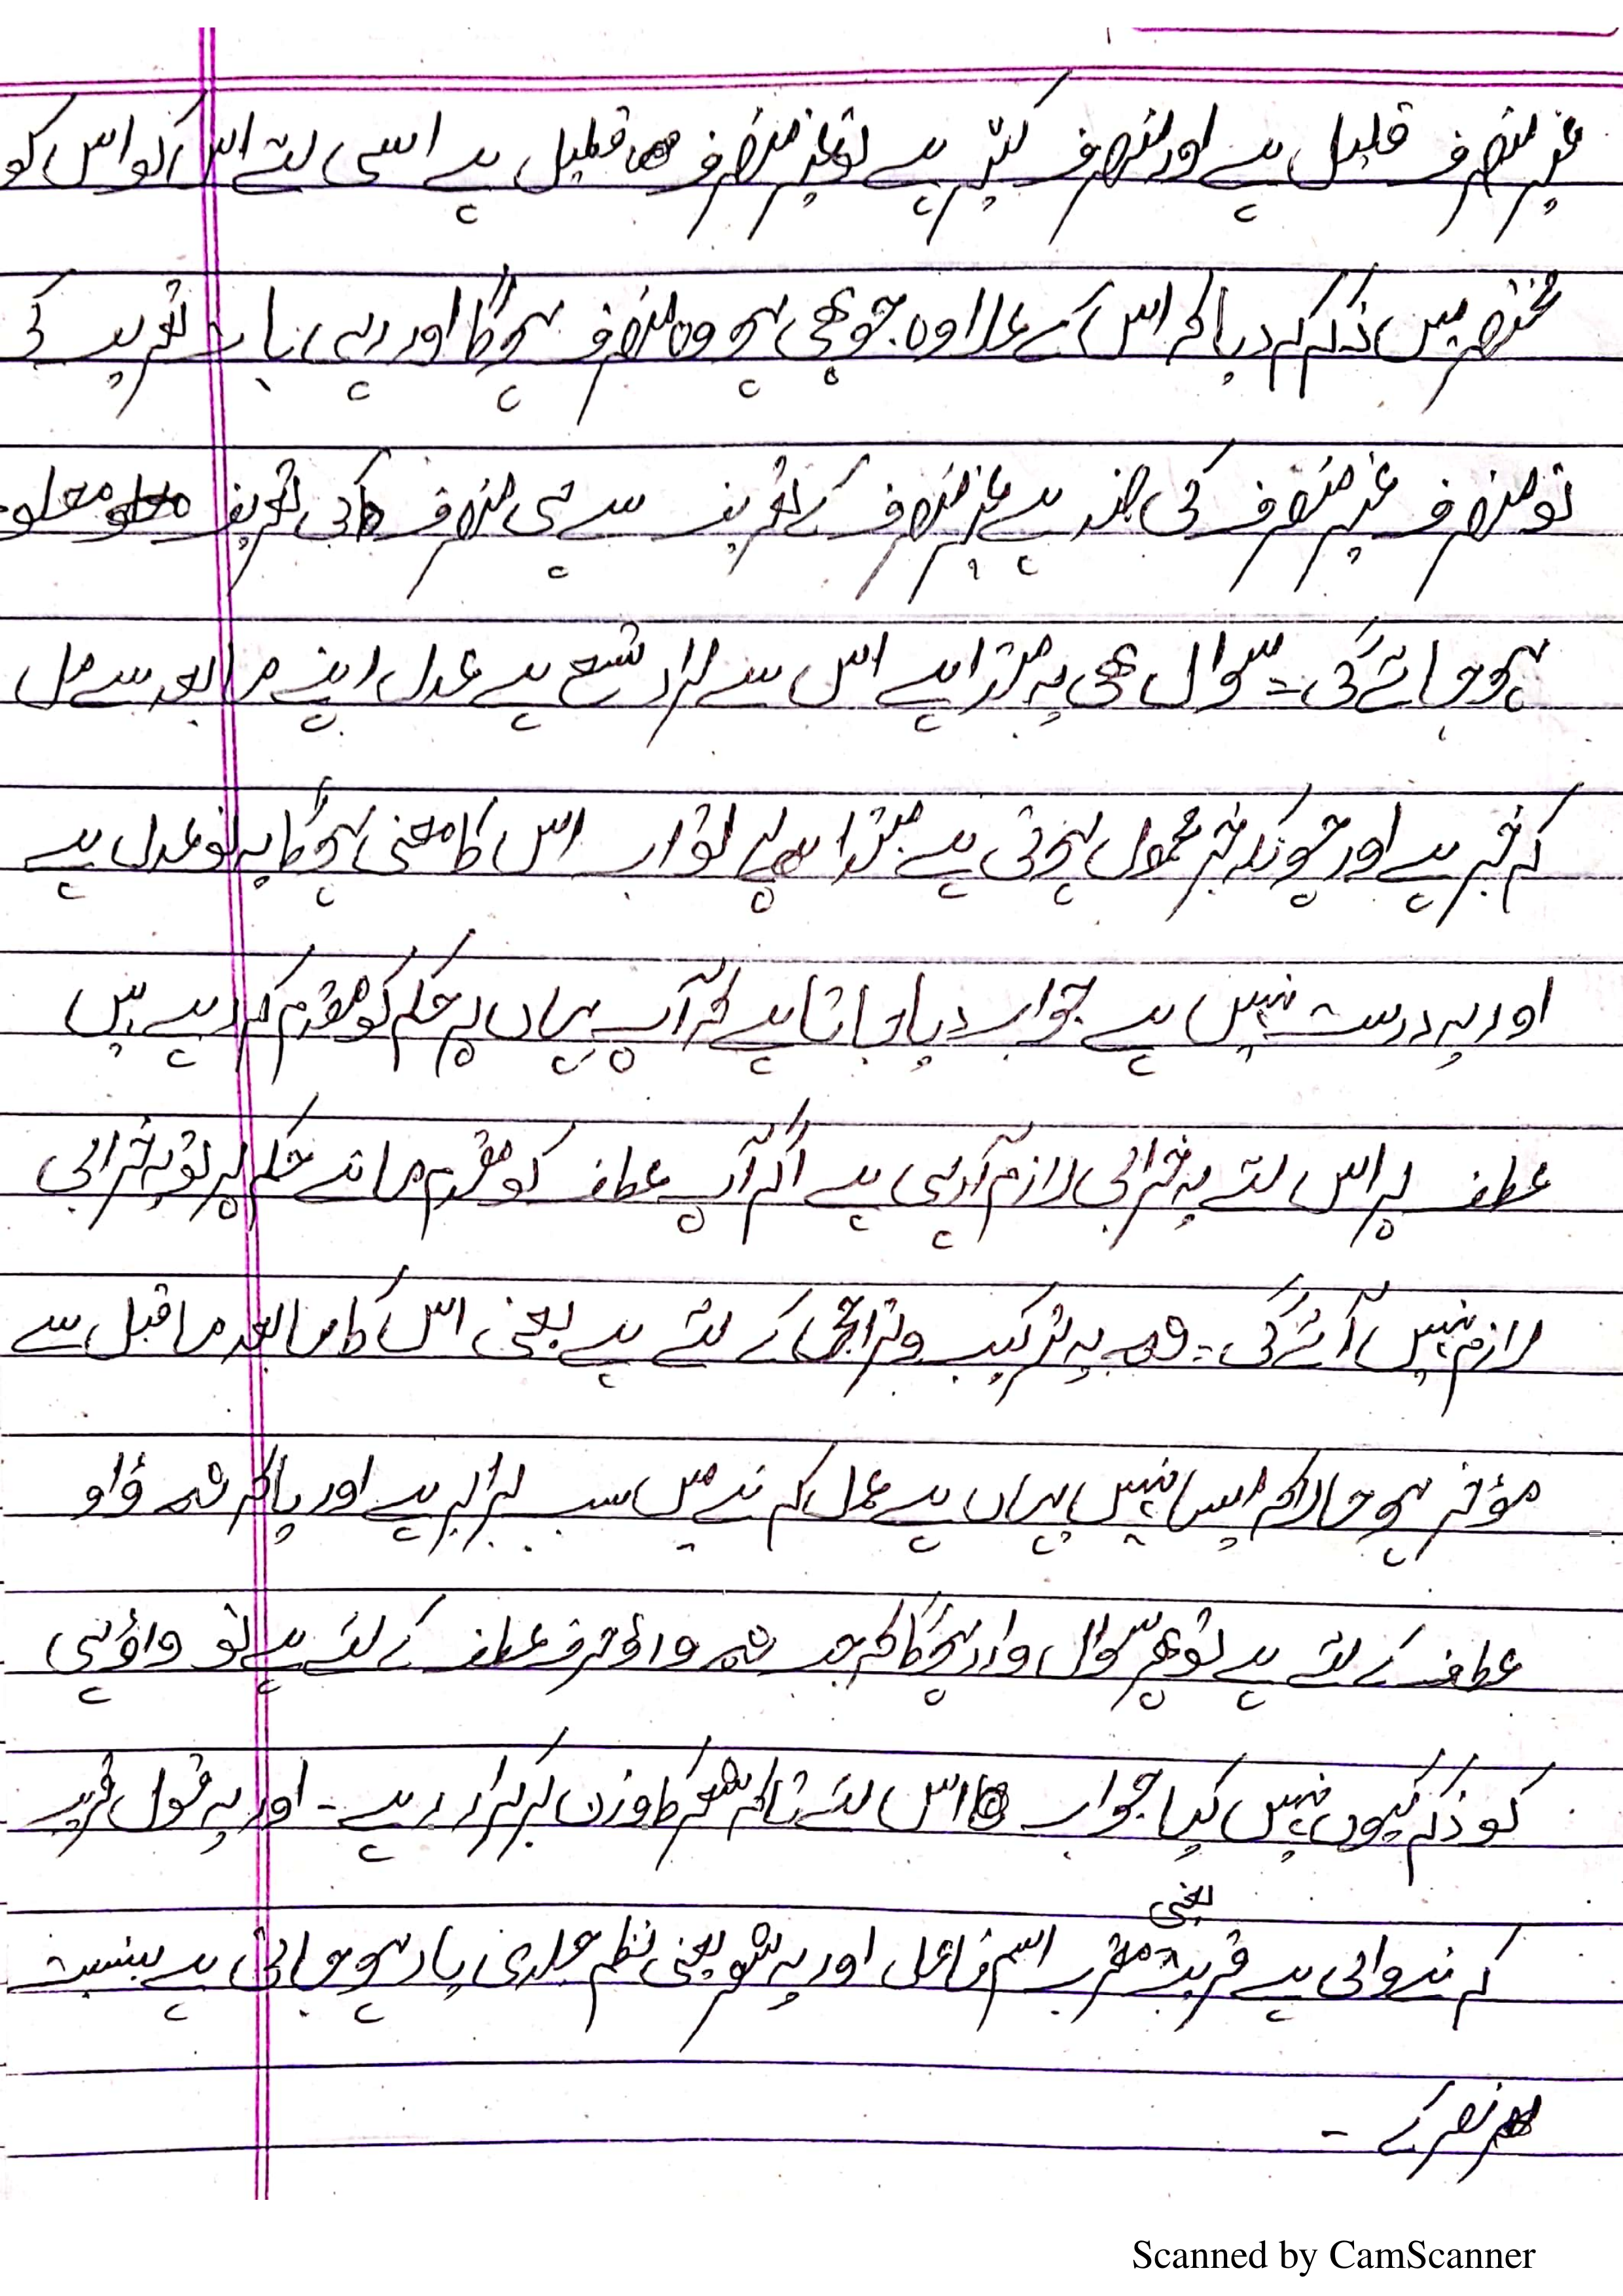 غیر منصرف قلیل ہے اور منصرف کثیر ہے تو غیر منصرف قلیل ہے اسی لئے اس کو اس کو
مختصر میں ذکر کر دیا کہ اس کے علاوہ جو بھی ہو وہ منصرف ہوگا اور رہی بات تعریف کی
تو منصرف غیر منصرف کی ضد ہے غیر منصرف کے تعریف سے ہی منصرف کی تعریف معلوم
ہو جائے گی۔ سوال ھی یہ مبتدا ہے اس سے مراد تسع ہے عدل اپنے ما بعد سے مل
کر خبر ہے اور چونکہ خبر محمول ہوتی ہے مبتدا پہ تو اب اس کا معنی ہوگا یہ نو عدل ہے
اور یہ درست نہیں ہے جواب دیا جاتا ہے کہ آپ یہاں پر حکم کو مقدم کر رہے ہیں
عطف پر اس لئے یہ خرابی لازم آ رہی ہے اگر آپ عطف کو مقدم مانتے حکم پر تو یہ خرابی
لازم نہیں آئے گی۔ یہ ترکیب وتراخی کے لئے ہے یعنی اس کا ما بعد ما قبل سے
مؤخر ہو حالانکہ ایسا نہیں یہاں ہے عمل کرنے میں سب برابر ہے اور یا کہ ثم واو
عطف کے لئے ہے تو پھر سوال وارد ہوگا کہ جب ثم واؤ حرف عطف کے لئے ہے تو واؤ ہی
کو ذکر کیوں نہیں کیا جواب اس لئے تاکہ شعر کا وزن برقرار رہے۔ اور یہ قول قریب
کرنے والی ہے قریب یعنی مقرب اسم فاعل اور یہ شعر یعنی نظم جلدی یاد ہو جاتی ہے بنسبت
نصر کے ۔
Scanned by CamScanner